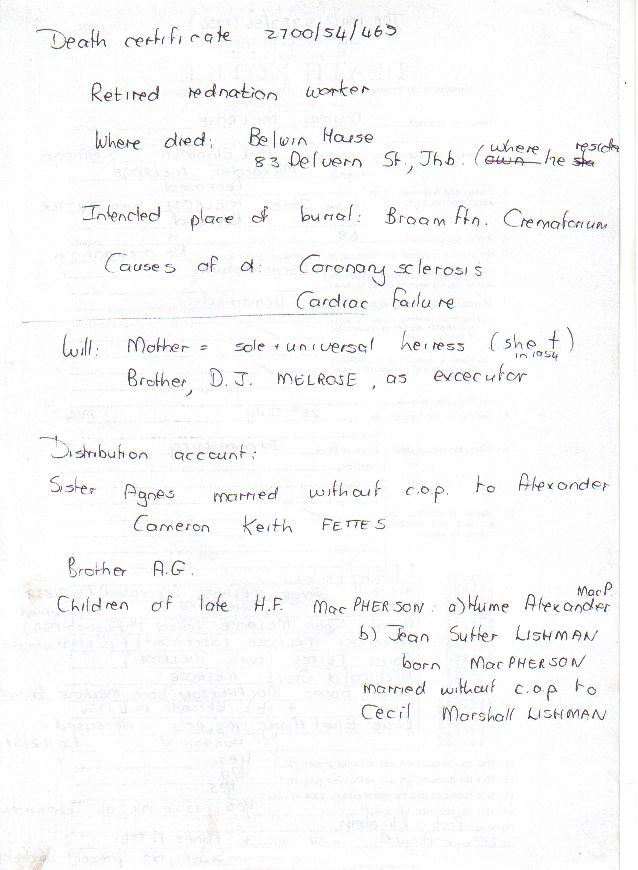 Death certificate 2700/54/463
Retired rednation worker
Where died: Belwin House
83 Delvern St., Jhb. (where he reside
Intended place of burial: Braam ftn. Crematorium
Causes of d: Coronary sclerosis
Cardiac Failure
Will: Mother = sole + universal heiress (she † in 1954)
Brother, D.J. MELROSE, as excecutor
Distribution account:
Sister Agnes married without c.o.p. to Alexander
Cameron Keith FETTES
Brother A.G.
Children of late H.F. MacPHERSON: a) Hume Alexander MacP.
b) Jean Sutter LISHMAN
born MacPHERSON
married without c.o.p to
Cecil Marshall LISHMAN